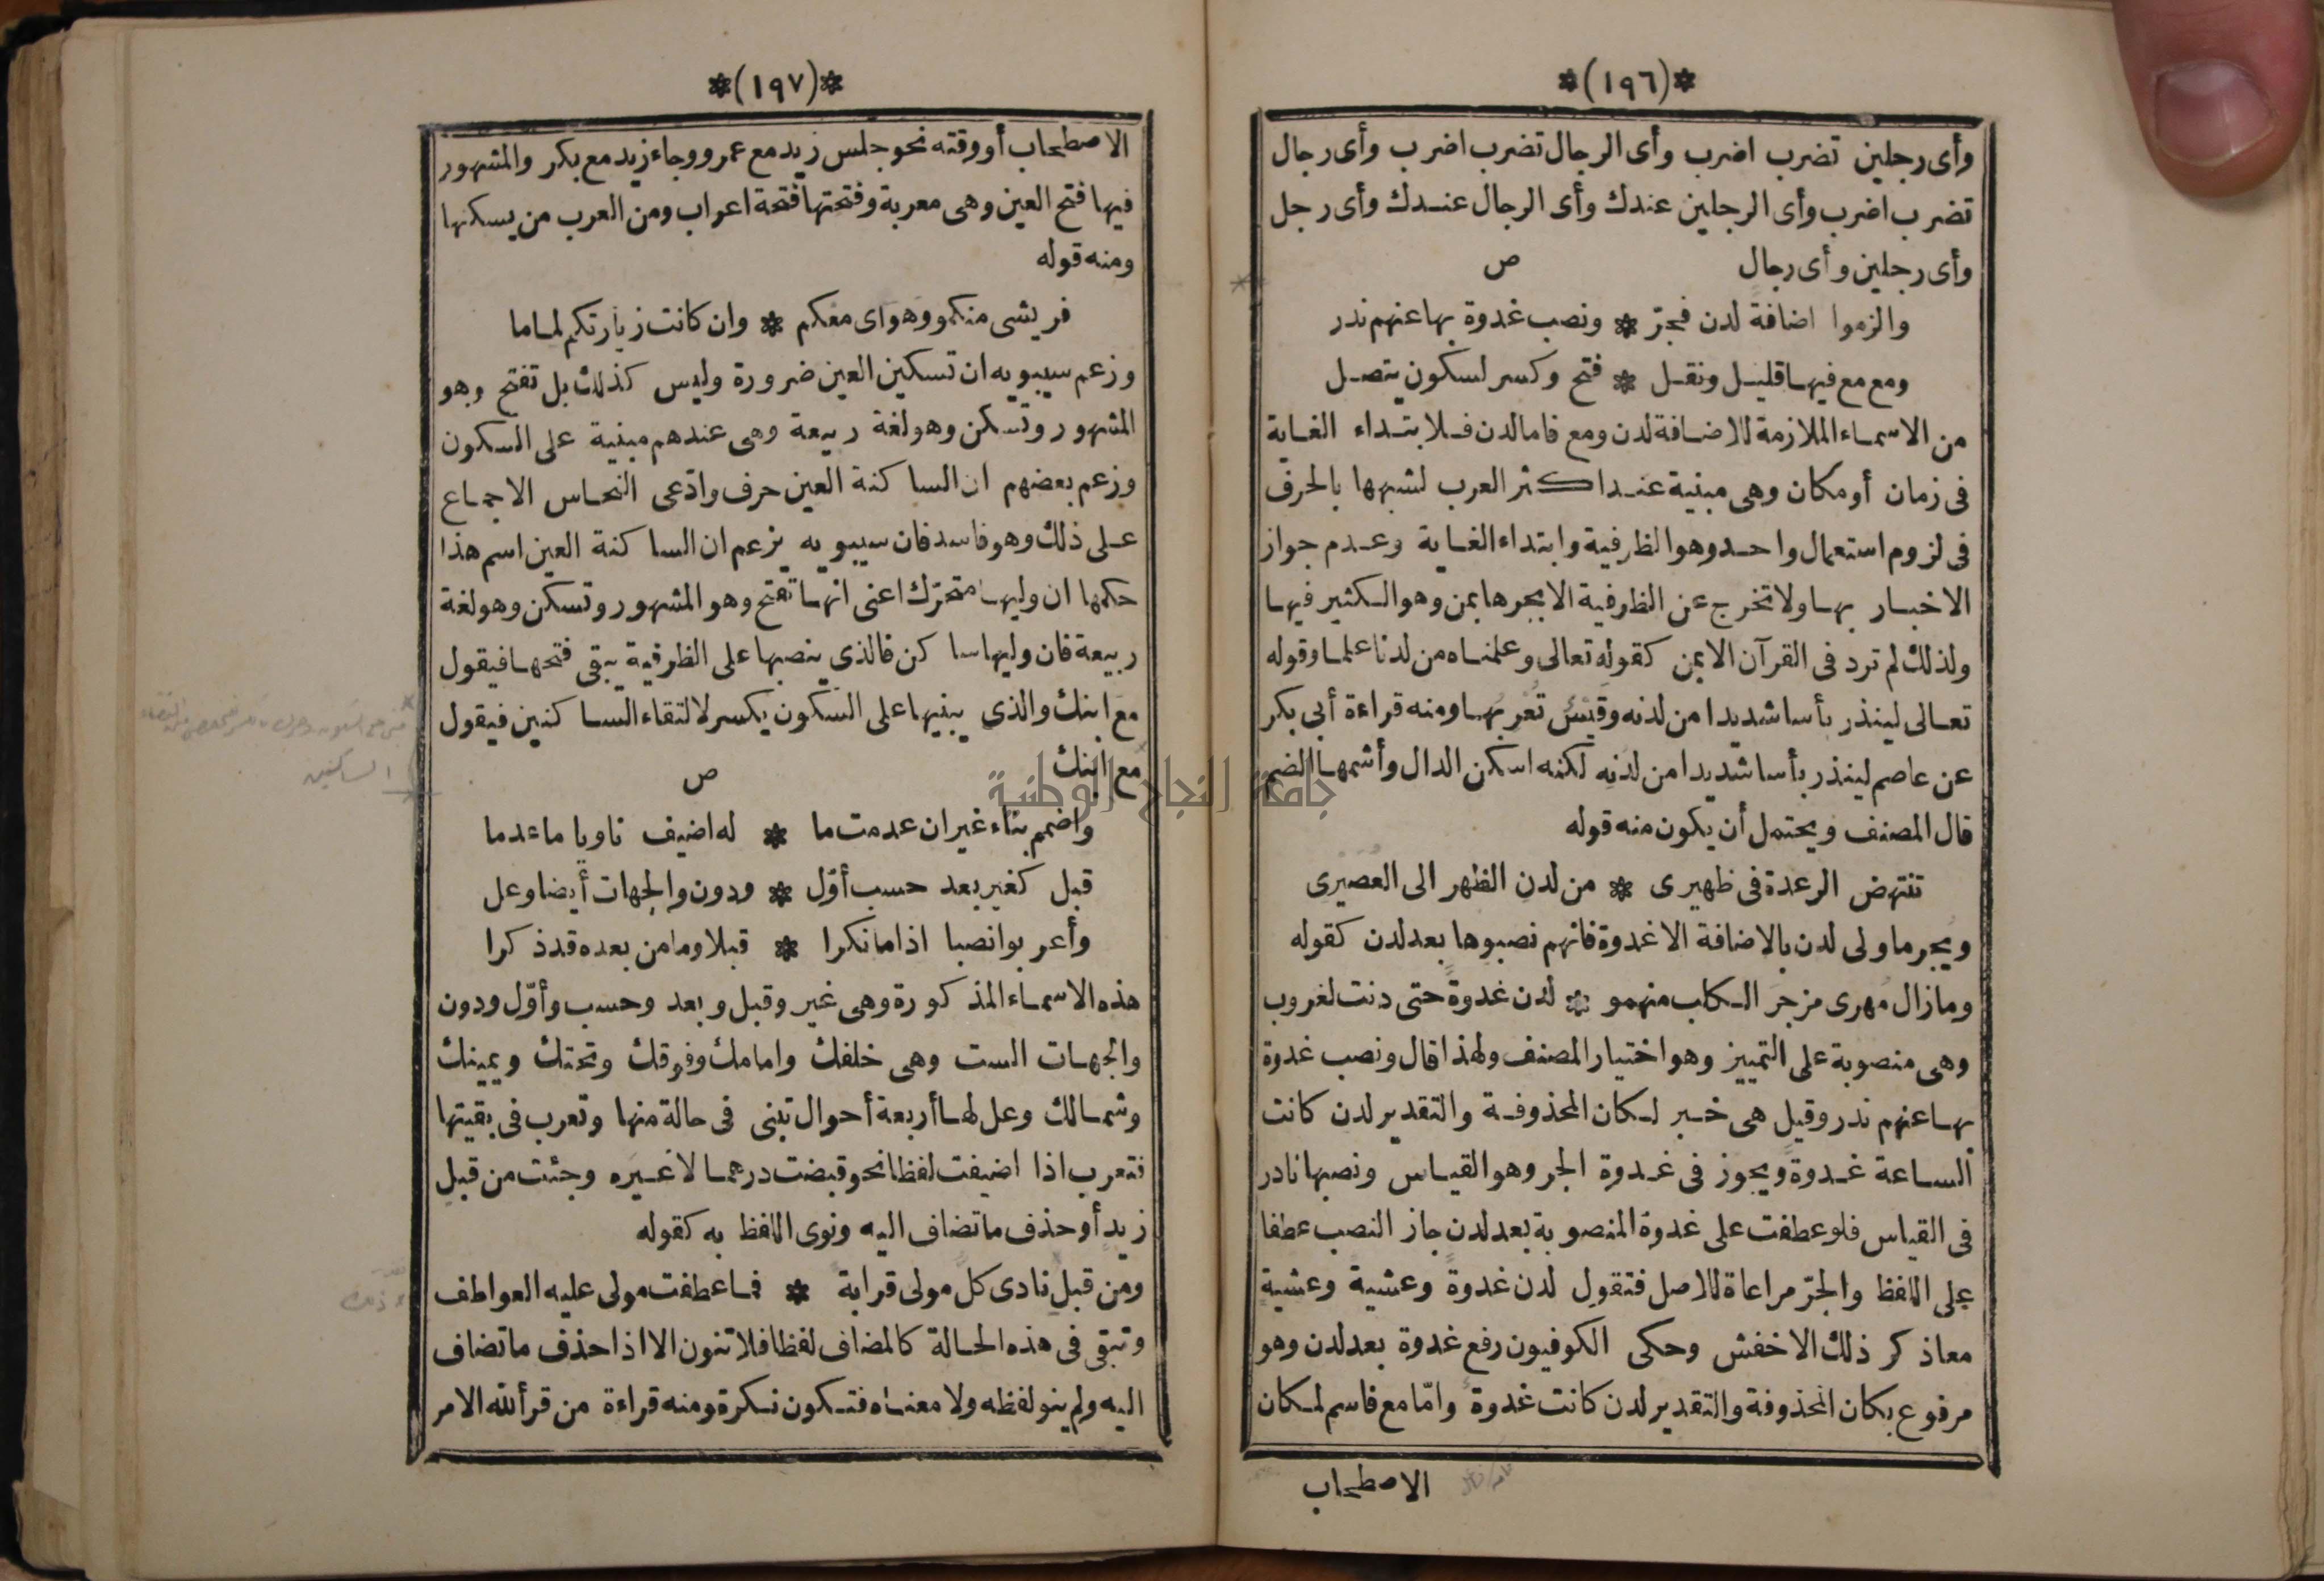 *(١٩٦)*
وأى رجلين تضرب اضرب وأى الرجال تضرب اضرب وأى رجال
تضرب اضرب وأى الرجلين عندك وأى الرجال عندك وأى رجل
وأى رجلين وأى رجال ص
والزموا اضافة لدن فجرّ * ونصب غدوة بها عنهم ندر
ومع مع فيها قليل ونقل * فتح وكسر لسكون يتصل
من الاسماء الملازمة للاضافة لدن ومع فامالدن فلابتداء الغاية
فى زمان أومكان وهى مبنية عند اكثر العرب لشبهها بالحرف
فى لزوم استعمال واحد وهو الظرفية وابتداء الغاية وعدم جواز
الاخبار بها ولا تخرج عن الظرفية الا بجرها بمن وهو الكثير فيها
ولذلك لم ترد فى القرآن الا بمن كقوله تعالى وعلمناه من لدنا علما وقوله
تعالى لينذر بأسا شديدا من لدنه وقيس تعربها ومنه قراءة أبى بكر
عن عاصم لينذر بأسا شديدا من لدنه لكنه اسكن الدال وأشمها الضم
قال المصنف ويحتمل أن يكون منه قوله
تنتهض الرعدة فى ظهيرى * من لدن الظهر الى العصيرى
ويجر ماولى لدن بالاضافة الا غدوة فانهم نصبوها بعد لدن كقوله
ومازال مهرى مزجر الكلب منهمو * لدن غدوة حتى دنت لغروب
وهى منصوبة على التمييز وهو اختيار المصنف ولهذا قال ونصب غدوة
بها عنهم ندر وقيل هى خبر لكان المحذوفة والتقدير لدن كانت
الساعة غدوة ويجوز فى غدوة الجر وهو القياس ونصبها نادر
فى القياس فلو عطفت على غدوة المنصوبة بعد لدن جاز النصب عطفا
على اللفظ والجرّ مراعاة للاصل فتقول لدن غدوة وعشية وعشية
معا ذكر ذلك الاخفش وحكى الكوفيون رفع غدوة بعد لدن وهو
مرفوع بكان المحذوفة والتقدير لدن كانت غدوة وامّا مع فاسم لمكان
الاصطحاب
*(١٩٧)*
الاصطحاب أو وقته نحو جلس زيد مع عمرو وجاء زيد مع بكر والمشهور
فيها فتح العين وهى معربة وفتحتها فتحة اعراب ومن العرب من يسكنها
ومنه قوله
فريشى منكمو وهواى معكم * وان كانت زيارتكم لماما
وزعم سيبويه ان تسكين العين ضرورة وليس كذلك بل تفتح وهو
المشهور وتسكن وهو لغة ربيعة وهى عندهم مبنية على السكون
وزعم بعضهم ان الساكنة العين حرف وادّعى النحاس الاجماع
على ذلك وهو فاسد فان سيبويه يزعم ان الساكنة العين اسم هذا
حكمها ان وليها متحرّك اعنى انها تفتح وهو المشهور وتسكن وهو لغة
ربيعة فان وليها ساكن فالذى ينصبها على الظرفية يبقى فتحها فيقول
مع ابنك والذى يبنيها على السكون يكسر لالتقاء الساكنين فيقول
مع ابنك ص
واضمم بناء غير ان عدمت ما * له اضيف ناويا ماعدما
قبل كغير بعد حسب أوّل * ودون والجهات أيضا وعل
وأعربوا نصبا اذا مانكرا * قبلا وما من بعده قد ذكرا
هذه الاسماء المذكورة وهى غير وقبل وبعد وحسب وأوّل ودون
والجهات الست وهى خلفك وامامك وفوقك وتحتك ويمينك
وشمالك وعل لها أربعة أحوال تبنى فى حالة منها وتعرب فى بقيتها
فتعرب اذا اضيفت لفظا نحو قبضت درهما لا غيره وجئت من قبل
زيد أو حذف ما تضاف اليه ونوى اللفظ به كقوله
ومن قبل نادى كل مولى قرابة * فما عطفت مولى عليه العواطف
وتبقى فى هذه الحالة كالمضاف لفظا فلا تنون الا اذا حذف ما تضاف
اليه ولم ينو لفظه ولا معناه فتكون نكرة ومنه قراءة من قرأ لله الامر
الساكنين
جامعة النجاح الوطنية